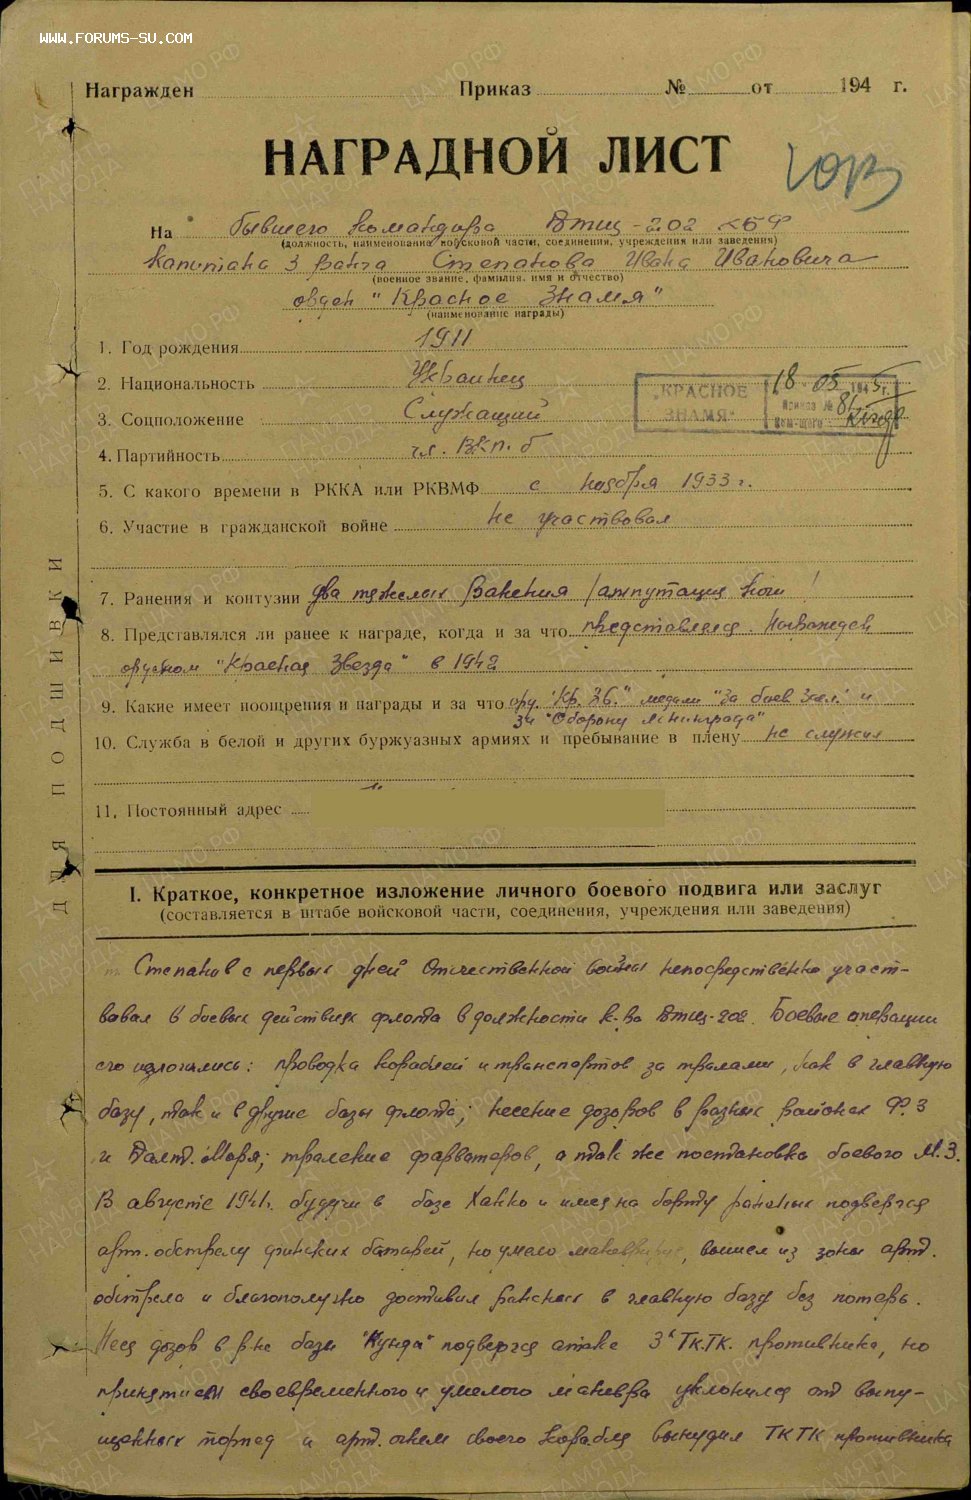 WWW.FORUMS-SU.COM
Награжден Приказ № от 194 г.
НАГРАДНОЙ ЛИСТ
На бывшего командира Бтщ-202 КБФ
(должность, наименование войсковой части, соединения, учреждения или заведения)
Капитана 3 ранга Степанова Ивана Ивановича
(военное звание, фамилия, имя и отчество)
орден "Красное Знамя"
(наименование награды)
1. Год рождения 1911
2. Национальность Украинец
"КРАСНОЕ ЗНАМЯ" 18 05 1945 г.
Приказ № 81
3. Соцположение Служащий
4. Партийность чл. ВКП.б
5. С какого времени в РККА или РКВМФ с ноября 1933 г.
6. Участие в гражданской войне не участвовал
7. Ранения и контузии два тяжелых ранения /ампутация ноги/
8. Представлялся ли ранее к награде, когда и за что представлялся. Награжден
орденом "Красная Звезда" в 1942
9. Какие имеет поощрения и награды и за что орд. "Кр. Зв." медали "За боев. засл." и
за "Оборону Ленинграда"
10. Служба в белой и других буржуазных армиях и пребывание в плену не служил
11. Постоянный адрес
ДЛЯ ПОДШИВКИ
I. Краткое, конкретное изложение личного боевого подвига или заслуг
(составляется в штабе войсковой части, соединения, учреждения или заведения)
т. Степанов с первых дней Отечественной войны непосредственно участ-
вовал в боевых действиях флота в должности к-ра Бтщ-202. Боевые операции
его изложились: проводка кораблей и транспортов за тралами, как в главную
базу, так и в другие базы флота; несение дозоров в разных районах Ф.З
и Балт. Моря; траление фарватеров, а так же постановка боевого М.З.
В августе 1941г. будучи в базе Ханко и имея на борту раненых подвергся
арт. обстрелу финских батарей, но умело маневрируя, вышел из зоны арт.
обстрела и благополучно доставил раненых в главную базу без потерь.
Неся дозор в р-не базы "Кунда" подвергся атаке 3х ТК.ТК. противника, но
принятием своевременного и умелого маневра уклонился от выпу-
щенных торпед и арт. огнем своего корабля вынудил ТКТК противника